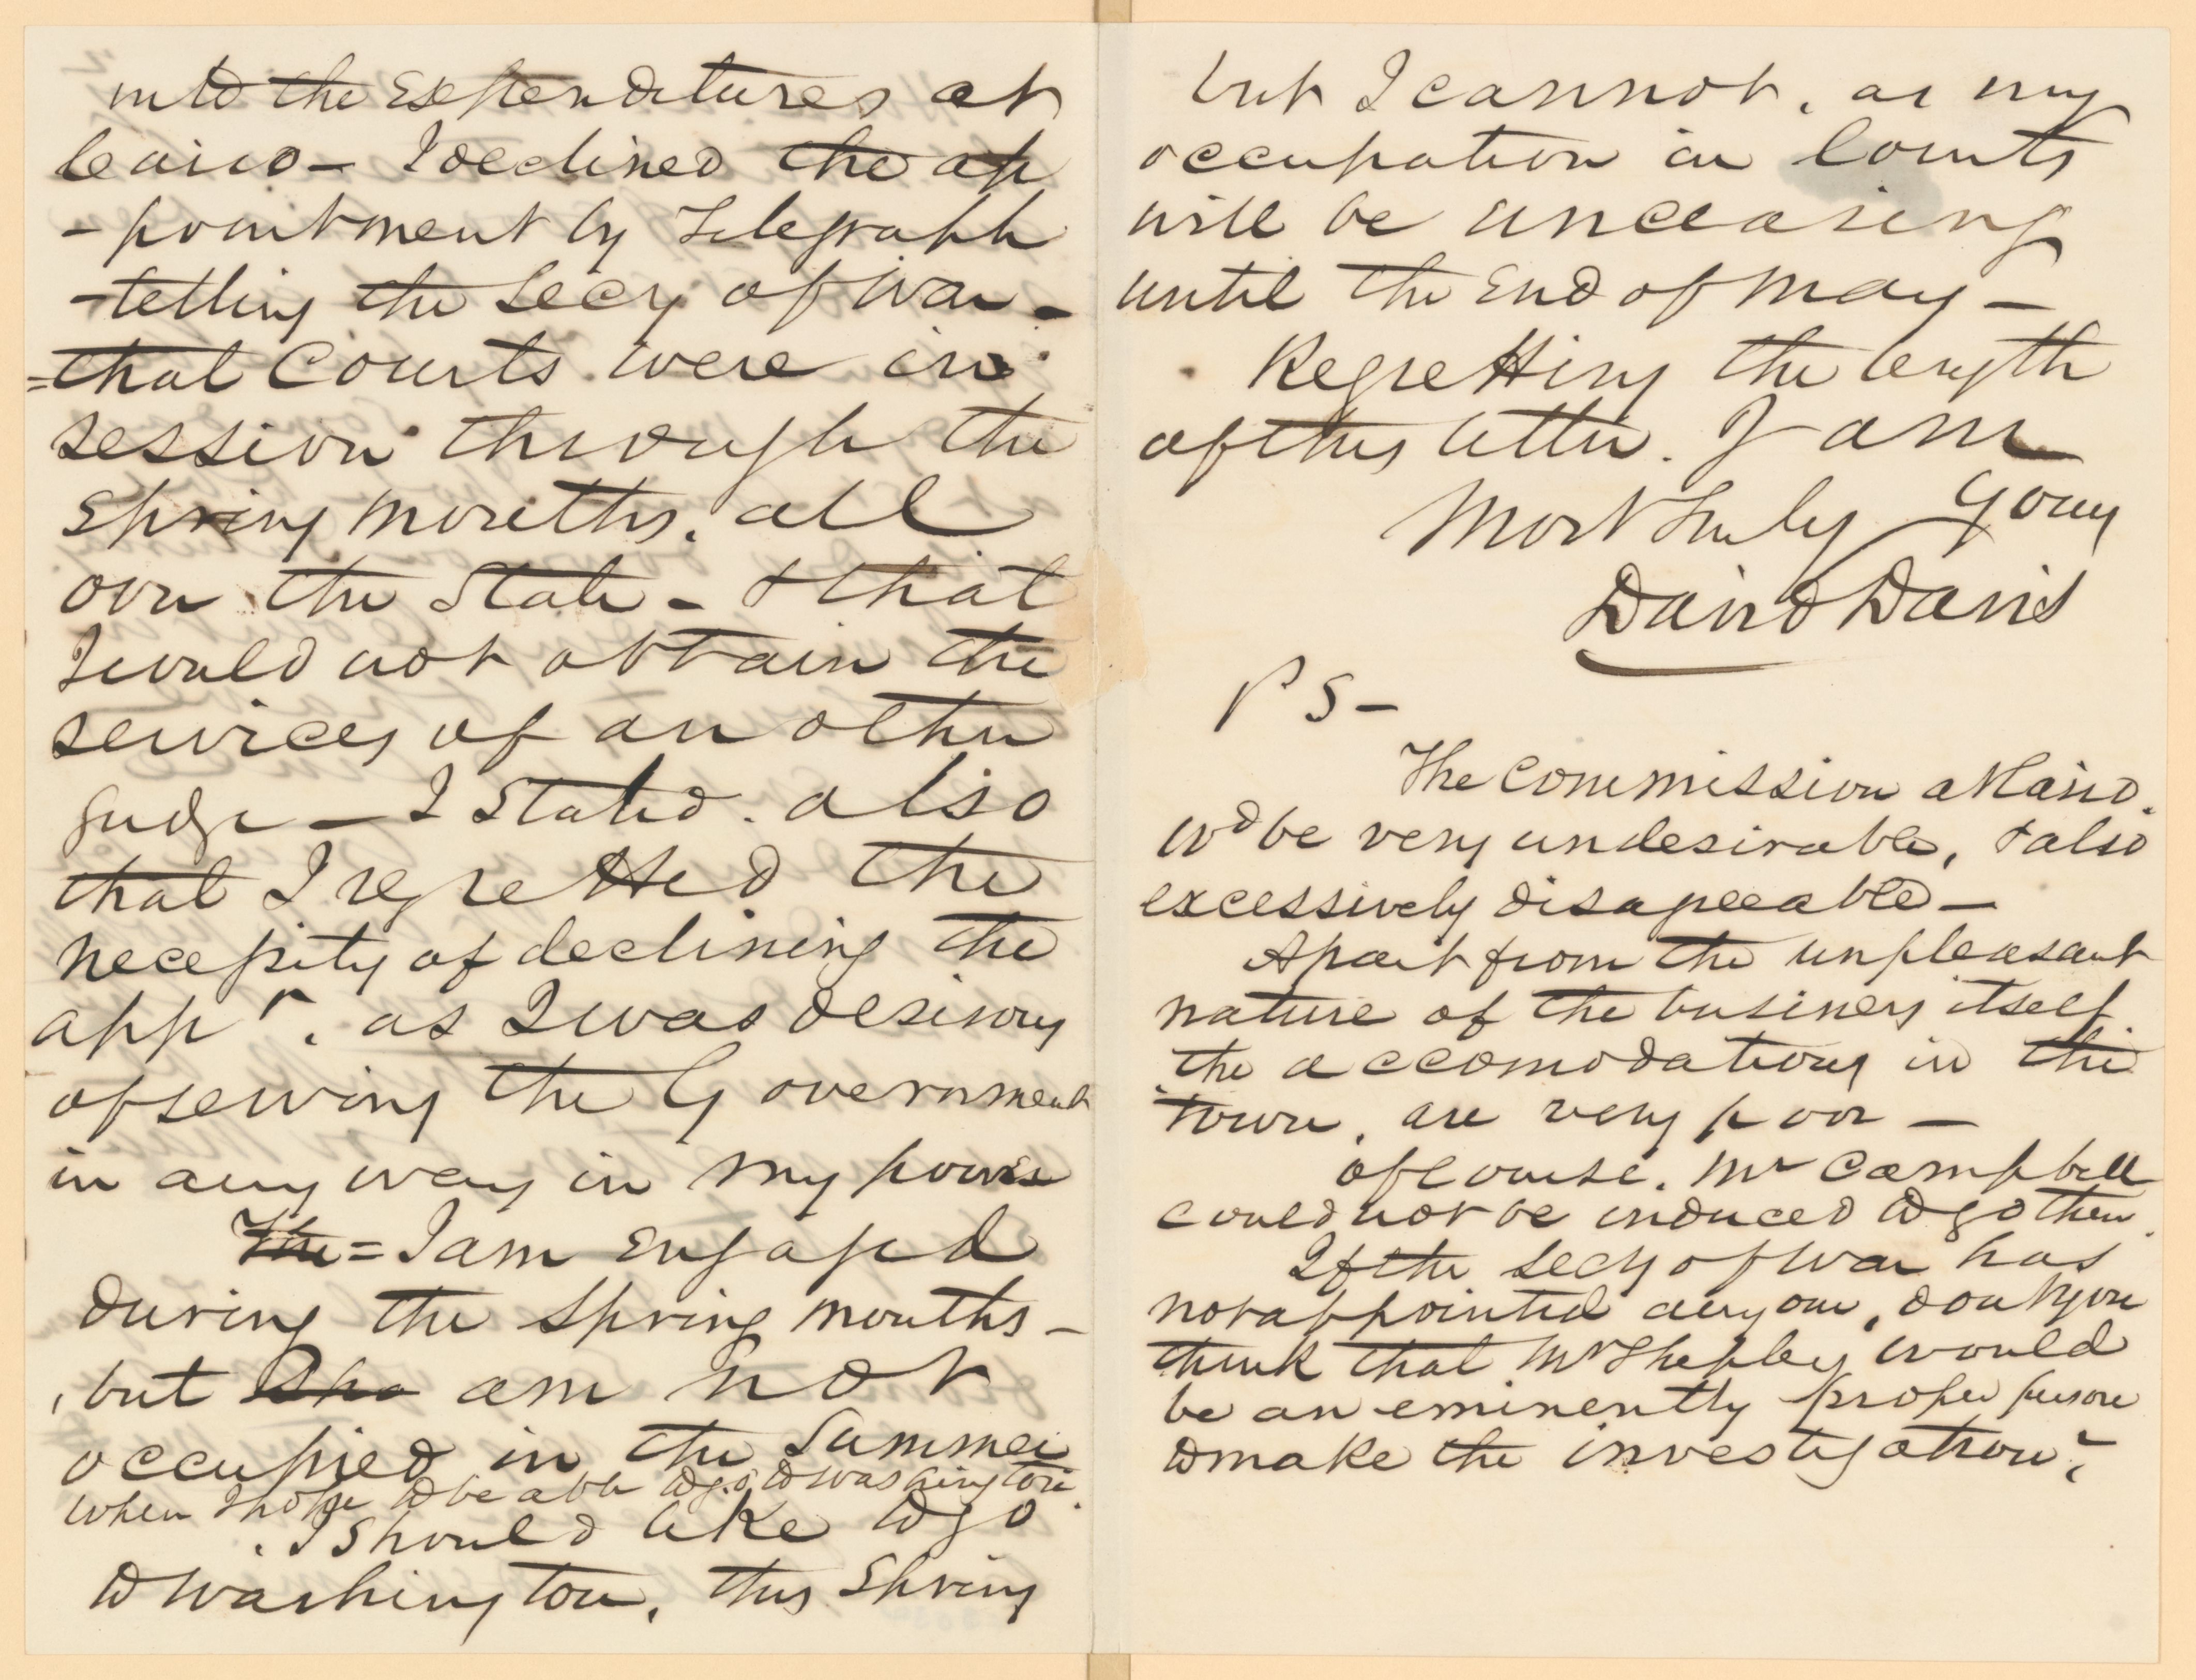 into the Expenditures at
Cairo - I declined the ap
- pointment by Telegraph
- telling the Secy of War -
= that Courts were in
session through the
Spring months. all
over the State - & that
I could not obtain the
services of an other
Judge - I Stated. also
that I regretted the
necessity of declining the
appt. as I was desirous
of serving the Government
in any way in my power
The = I am Engaged
during the Spring months -
, but am not
occupied in the Summer
when I hope to be able to go to Washington.
. I should like to go
to Washington. this Spring
but I cannot, as my
occupation in Courts
will be unceasing
until the End of May -
Regretting the length
of this letter. I am
Most Truly Yours
David Davis
P S -
The Commission at Cairo.
wd be very undesirable, & also
excessively disagreeable -
Apart from the unpleasant
nature of the business itself
the accomodations in the
town, are very poor -
of course. Mr Campbell
could not be induced to go there.
If the Secy of War has
not appointed any one, dont you
think that Mr Shepley would
be an eminently proper person
to make the investigation?